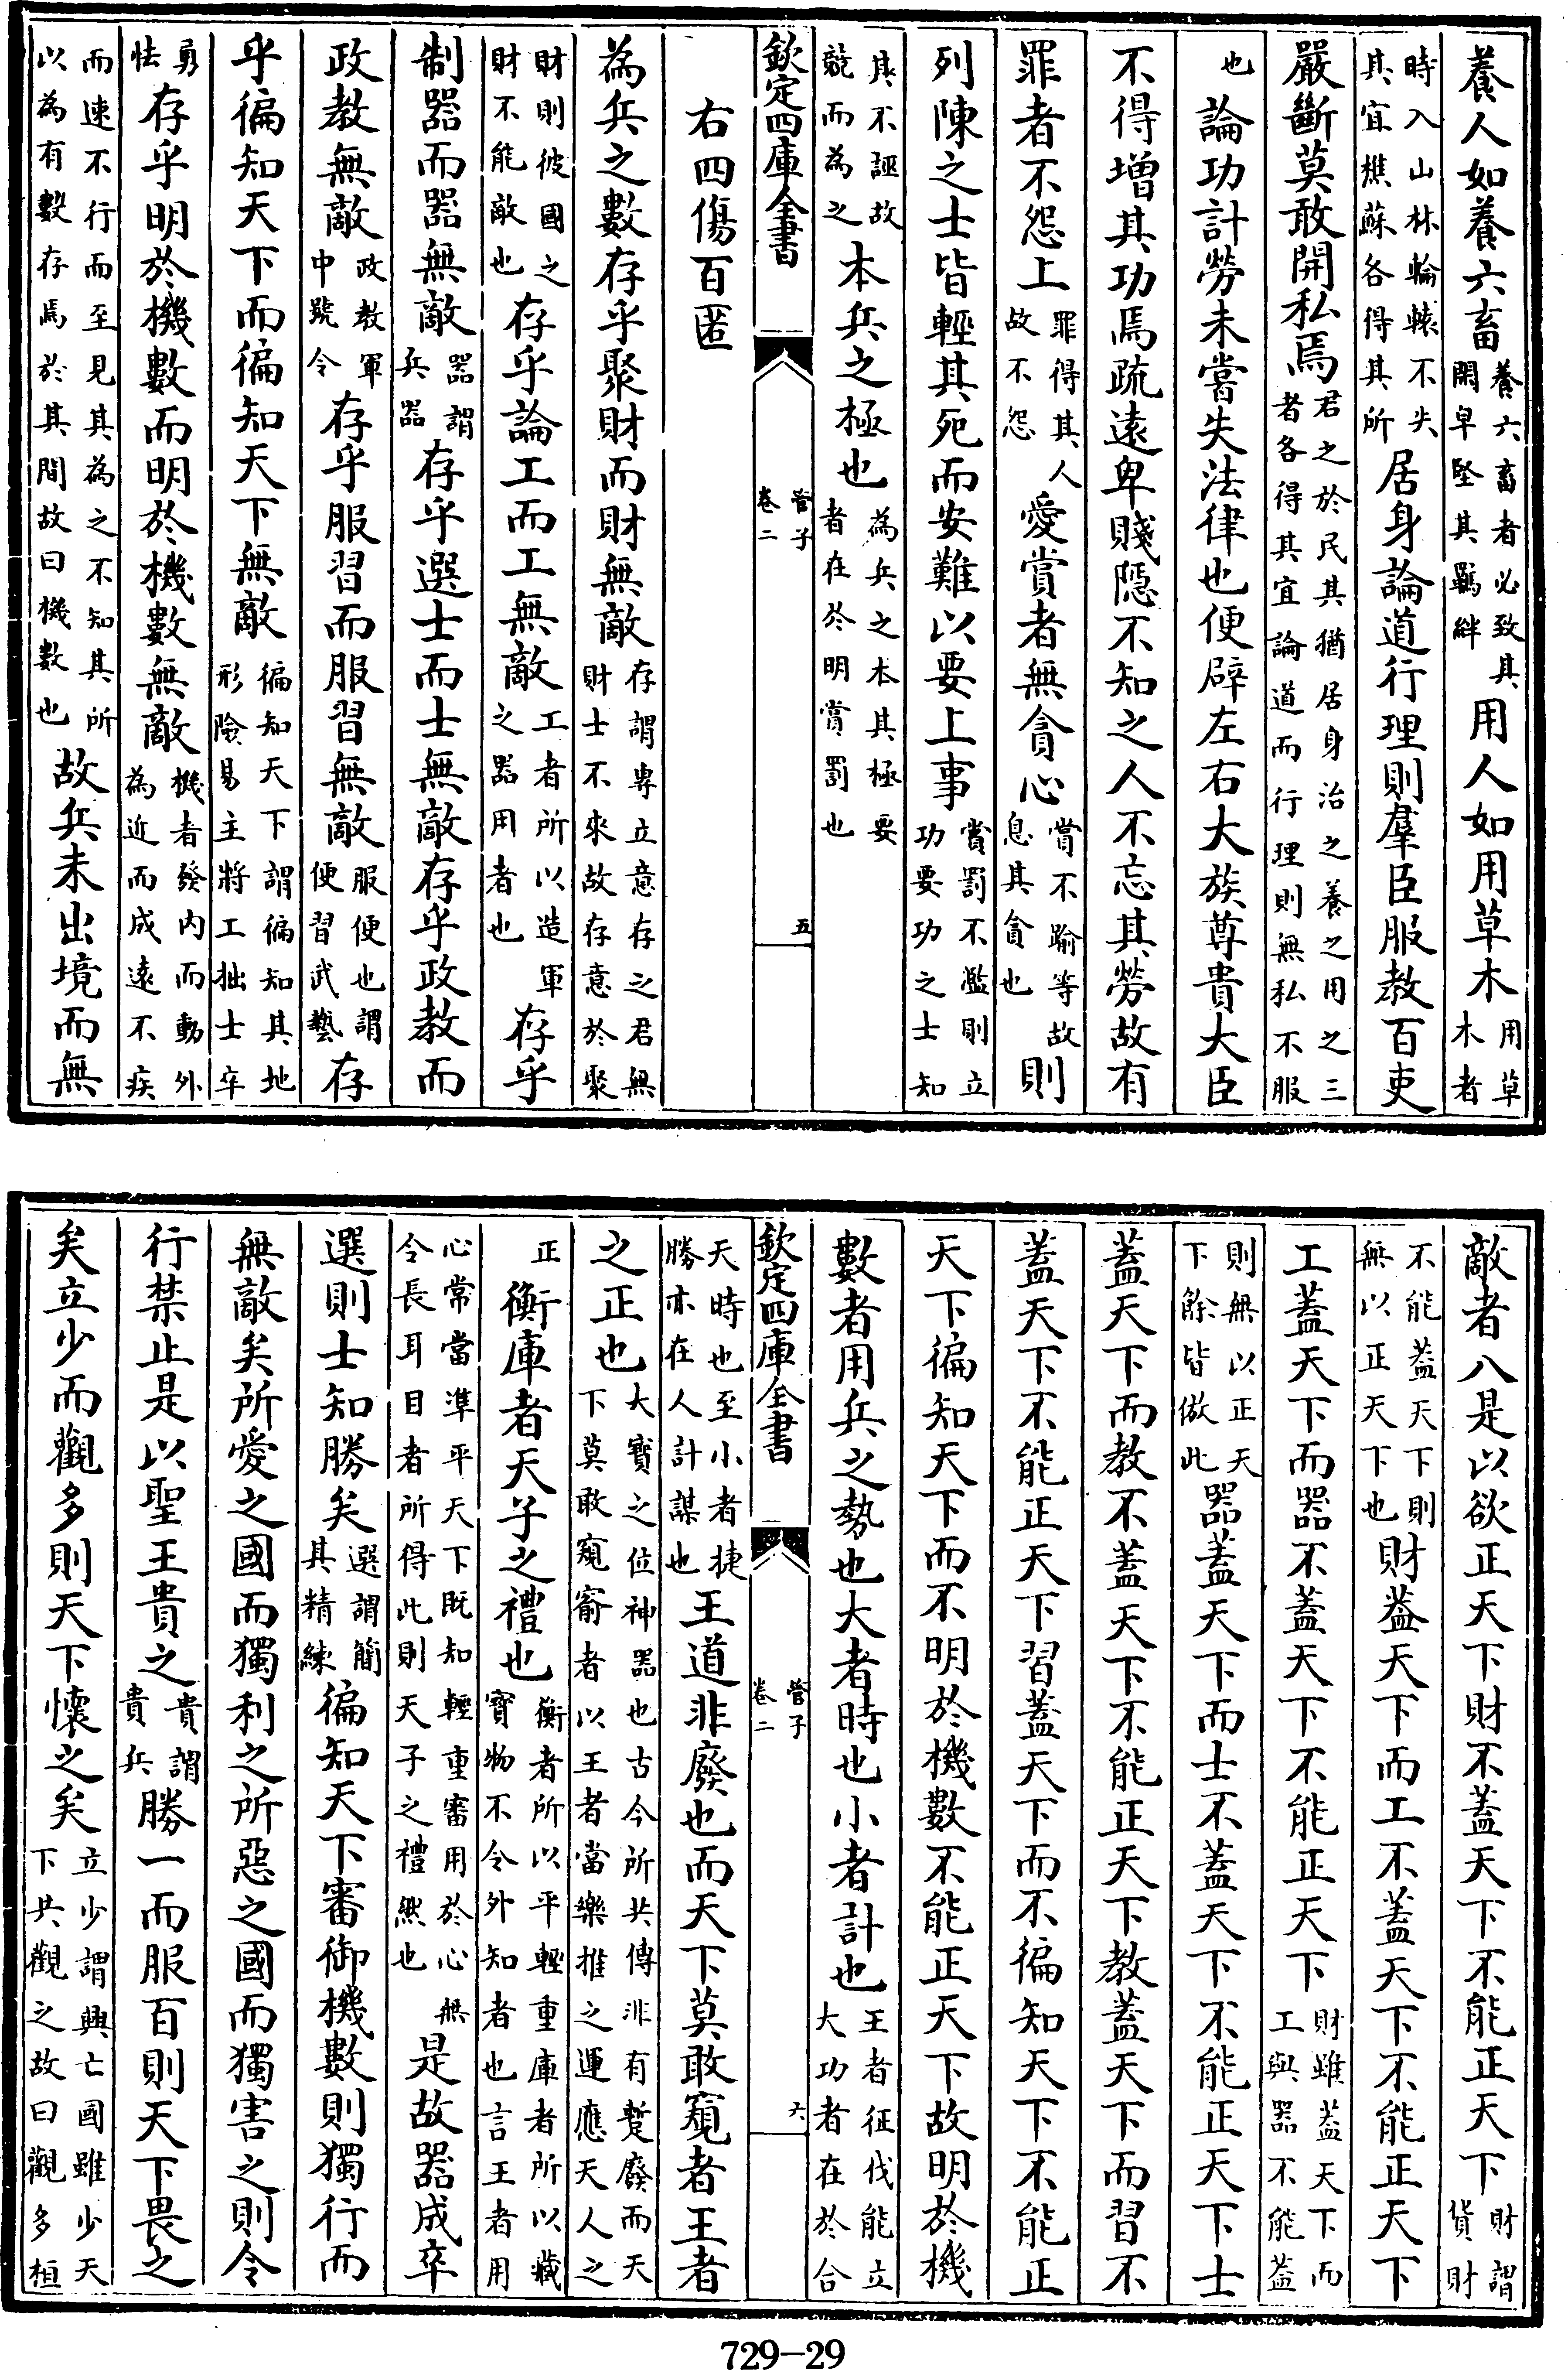 養人如養六畜養六畜者必致其閑皁堅其羈絆用人如用草木用草木者
時入山林輪轅不失其宜樵蘇各得其所居身論道行理則羣臣服教百吏
嚴斷莫敢開私焉君之於民其猶居身治之養之用之三者各得其宜論道而行理則無私不服
也論功計勞未嘗失法律也便辟左右大族尊貴大臣
不得增其功焉疏遠卑賤隱不知之人不忘其勞故有
罪者不怨上罪得其人故不怨愛賞者無貪心賞不踰等故息其貪也則
列陳之士皆輕其死而安難以要上事賞罰不濫則立功要功之士知
其不誣故競而為之本兵之極也為兵之本其極要者在於明賞罰也
欽定四庫全書 管子 卷二 五
右四傷百匿
為兵之數存乎聚財而財無敵存謂專立意存之君無財士不來故存意於聚
財則彼國之財不能敵也存乎論工而工無敵工者所以造軍之器用者也存乎
制器而器無敵器謂兵器存乎選士而士無敵存乎政教而
政教無敵政教軍中號令存乎服習而服習無敵服便也謂便習武藝存
乎徧知天下而徧知天下無敵徧知天下謂徧知其地形險易主將工拙士卒
勇怯存乎明於機數而明於機數無敵機者發內而動外為近而成遠不疾
而速不行而至見其為之不知其所以為有數存焉於其間故曰機數也故兵未出境而無
敵者八是以欲正天下財不蓋天下不能正天下財謂貨財
不能蓋天下則無以正天下也財蓋天下而工不蓋天下不能正天下
工蓋天下而器不蓋天下不能正天下財雖蓋天下而工與器不能蓋
則無以正天下餘皆倣此器蓋天下而士不蓋天下不能正天下士
蓋天下而教不蓋天下不能正天下教蓋天下而習不
蓋天下不能正天下習蓋天下而不徧知天下不能正
天下徧知天下而不明於機數不能正天下故明於機
數者用兵之勢也大者時也小者計也王者征伐能立大功者在於合
天時也至小者捷勝亦在人計謀也王道非廢也而天下莫敢窺者王者
欽定四庫全書 管子 卷二 六
之正也大寶之位神器也古今所共傳非有蹔廢而天下莫敢窺窬者以王者當樂推之運應天人之
正衡庫者天子之禮也衡者所以平輕重庫者所以藏寶物不令外知者也言王者用
心常當準平天下既知輕重審用於心無令長耳目者所得此則天子之禮然也是故器成卒
選則士知勝矣選謂簡其精練徧知天下審御機數則獨行而
無敵矣所愛之國而獨利之所惡之國而獨害之則令
行禁止是以聖王貴之貴謂貴兵勝一而服百則天下畏之
矣立少而觀多則天下懷之矣立少謂興亡國雖少天下共觀之故曰觀多桓
729-29